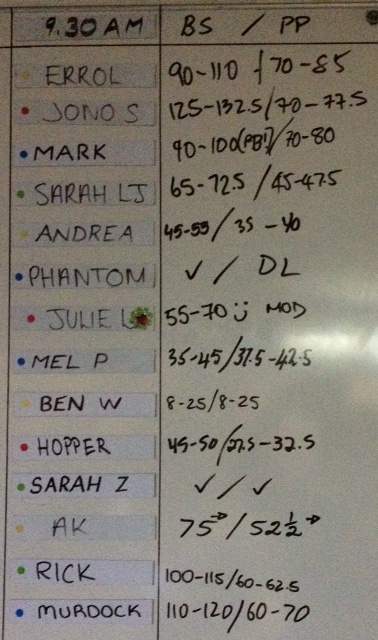 9.30 AM BS / PP
ERROL 90-110 / 70-85
JONO S 125-132.5/70-77.5
MARK 90-100(PB!)/70-80
SARAH LJ 65-72.5 / 45-47.5
ANDREA 45-55/35-40
PHANTOM ✓ / DL
JULIE L 55-70 ü MOD
MEL P 35-45/37.5-42.5
BEN W 8-25/8-25
HOPPER 45-50/27.5-32.5
SARAH Z ✓ / ✓
AK 75→ / 52½→
RICK 100-115/60-62.5
MURDOCK 110-120/60-70